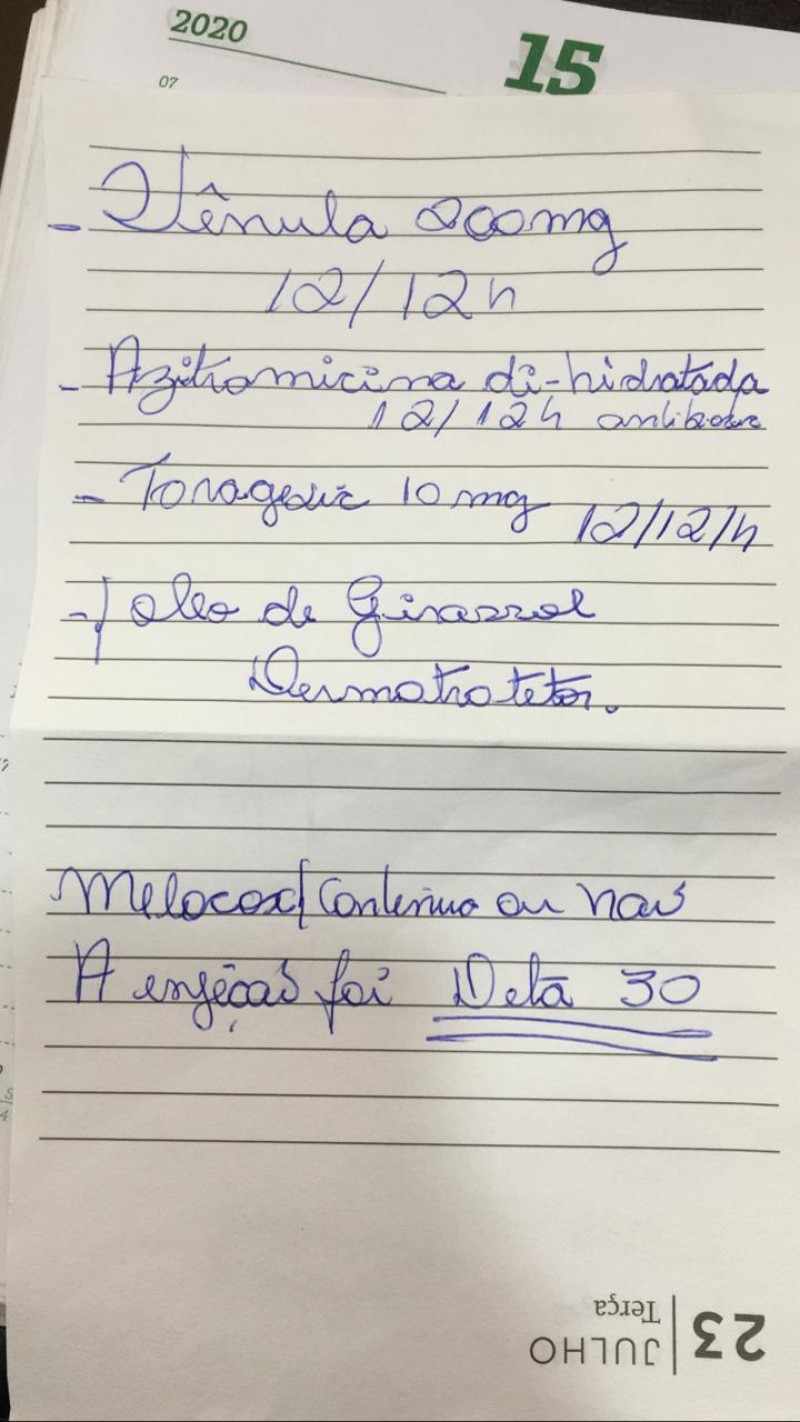 2020
15
07
- Vênula 200mg
12/12h
- Azitromicina di-hidratada
12/12h
- Toragesic 10 mg 12/12/h
- oleo de Girassol
Dermotrotetor.
Melocox/Continuo ou não
A enjeção foi Detã 30
23 JULHO
Terça